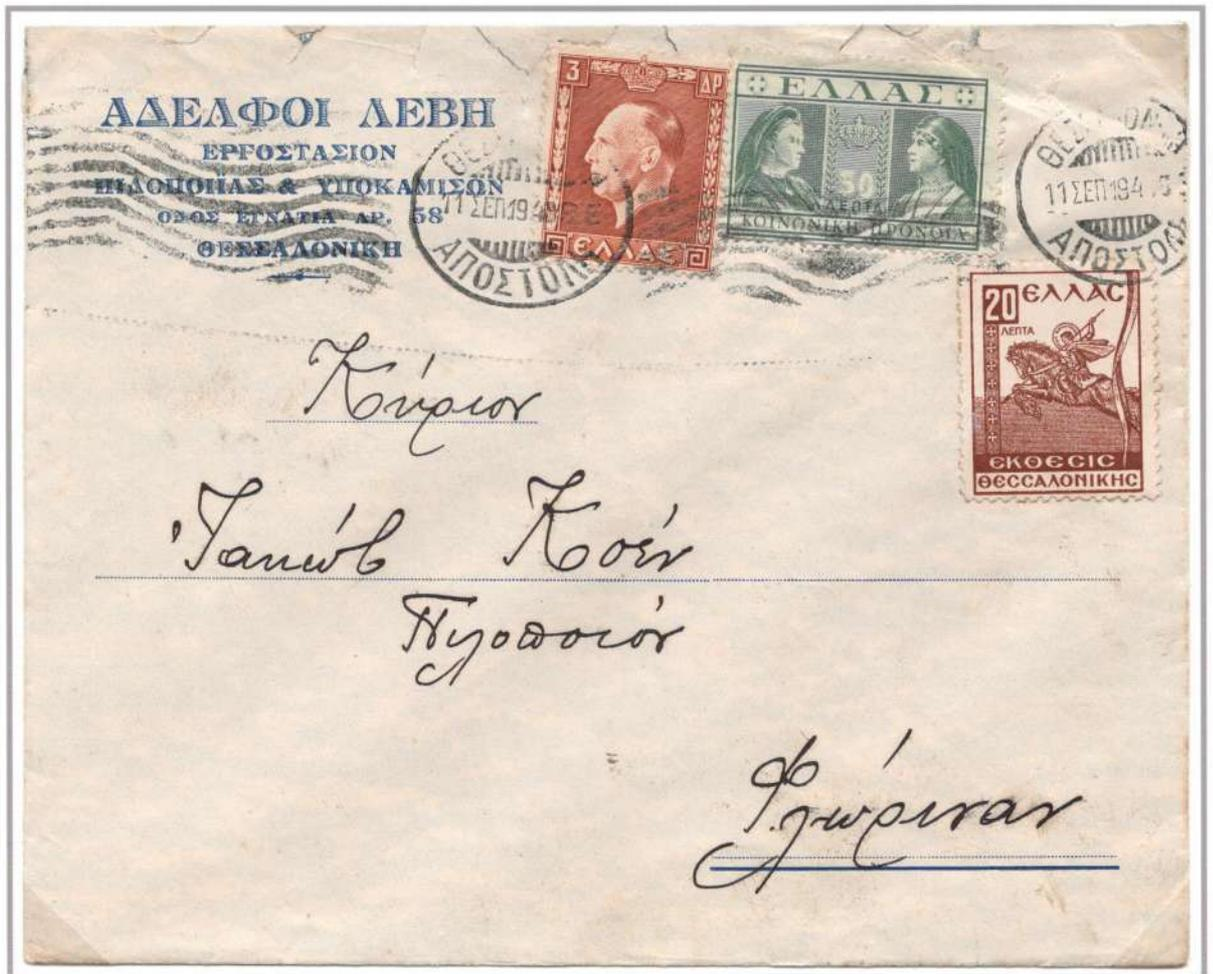 ΑΔΕΛΦΟΙ ΛΕΒΗ
ΕΡΓΟΣΤΑΣΙΟΝ
ΠΙΛΟΠΟΙΪΑΣ & ΥΠΟΚΑΜΙΣΩΝ
ΟΔΟΣ ΕΓΝΑΤΙΑ ΑΡ. 58
ΘΕΣΣΑΛΟΝΙΚΗ
3 ΔΡ
ΕΛΛΑΣ
ΕΛΛΑΣ
50
ΛΕΠΤΑ
ΚΟΙΝΩΝΙΚΗ ΠΡΟΝΟΙΑ
11 ΣΕΠ 194
ΑΠΟΣΤΟΛΗ
11 ΣΕΠ 194
ΑΠΟΣΤΟΛ
20 ΕΛΛΑC
ΛΕΠΤΑ
ΕΚΘΕCΙC
ΘΕCCΑΛΟΝΙΚΗC
Κύριον
Ἰακώβ Κοέν
Πιλοποιόν
Φλώριναν